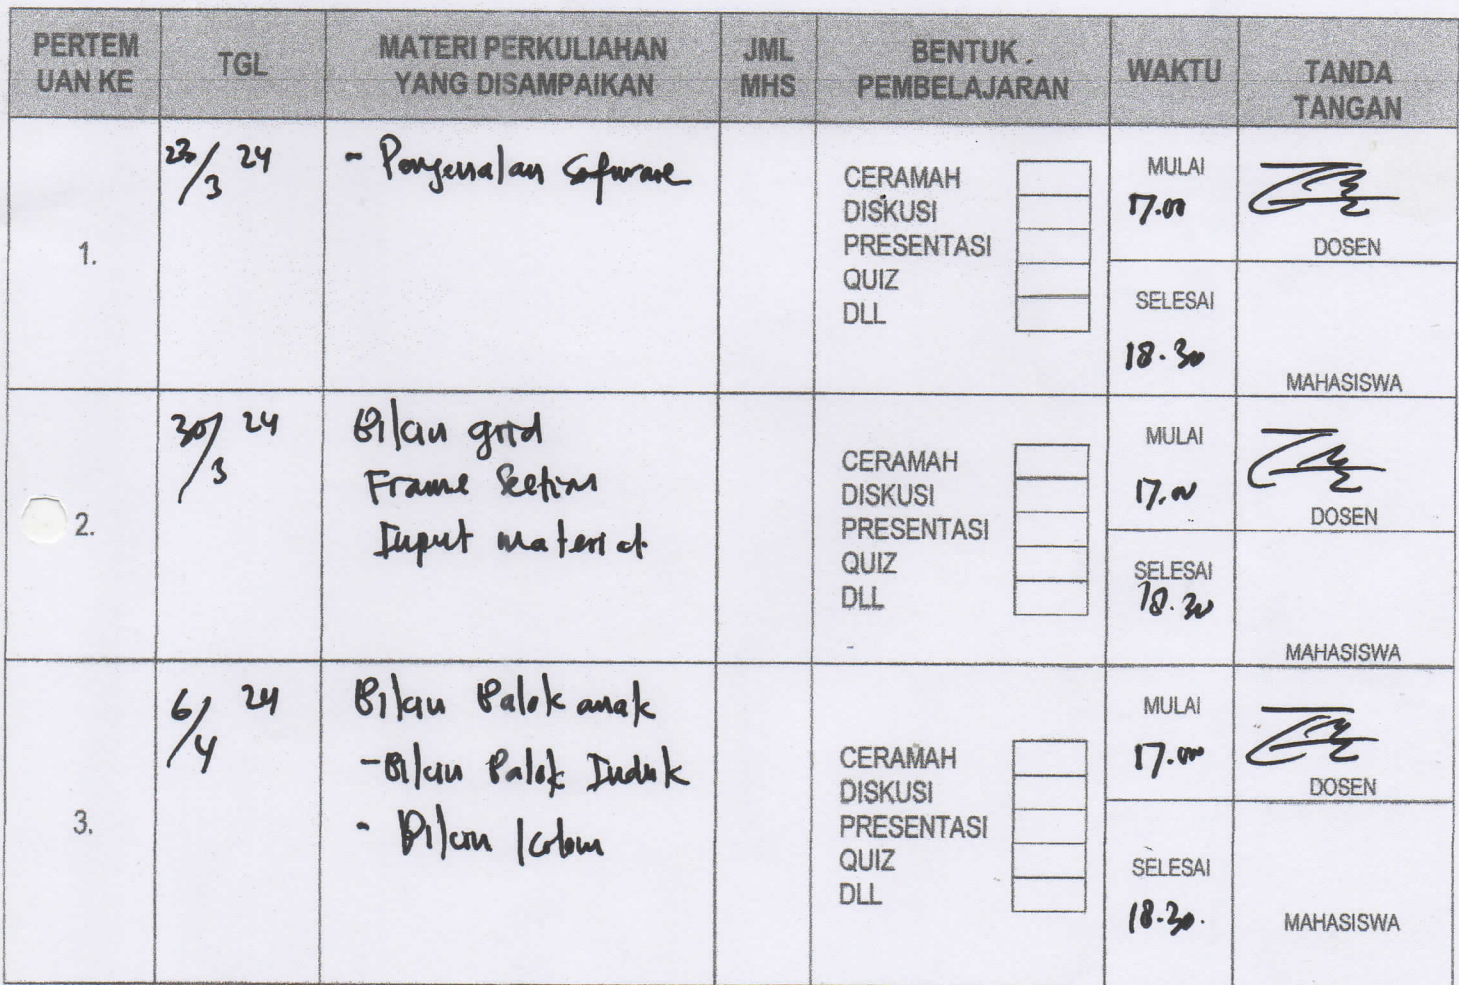 PERTEM
UAN KE
TGL
MATERI PERKULIAHAN
YANG DISAMPAIKAN
JML
MHS
BENTUK.
PEMBELAJARAN
WAKTU
TANDA
TANGAN
1.
23/3 24
- Pengenalan Sofware
CERAMAH
DISKUSI
PRESENTASI
QUIZ
DLL
MULAI
17.00
SELESAI
18.30
DOSEN
MAHASISWA
2.
30/3 24
Bikin grid
Frame Section
Input material
CERAMAH
DISKUSI
PRESENTASI
QUIZ
DLL
MULAI
17.00
SELESAI
18.30
DOSEN
MAHASISWA
3.
6/4 24
Bikin Balok anak
- Bikin Balok Induk
- Bikin kolom
CERAMAH
DISKUSI
PRESENTASI
QUIZ
DLL
MULAI
17.00
SELESAI
18.30.
DOSEN
MAHASISWA